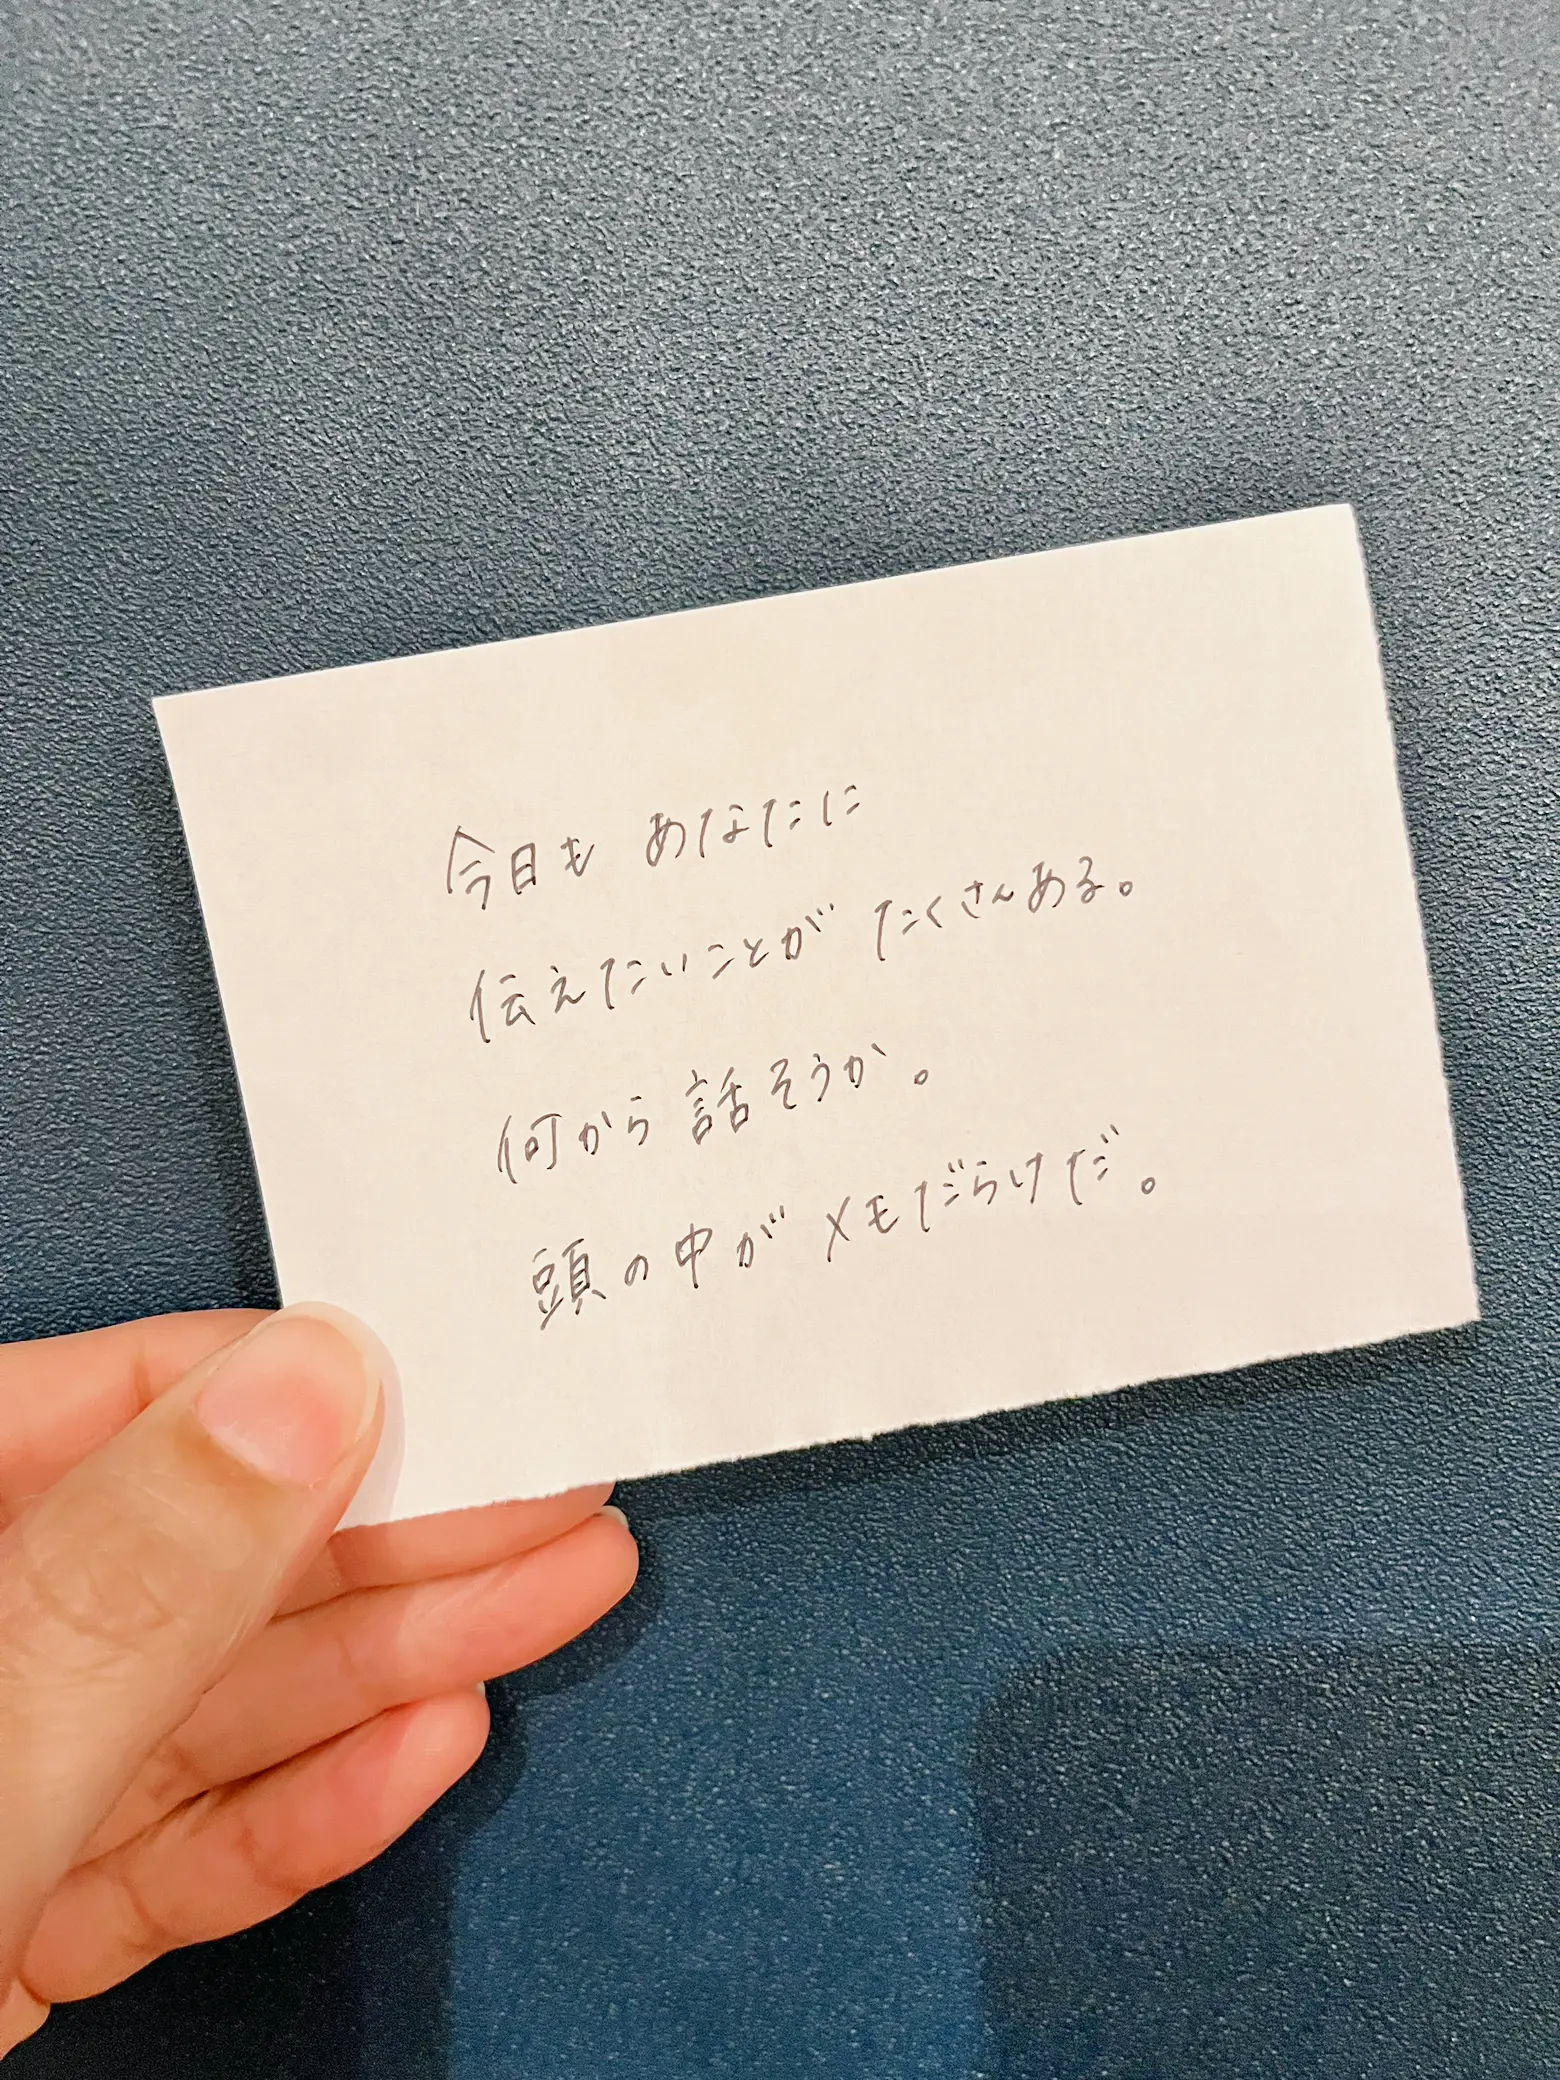 今日も あなたに
伝えたいことが たくさんある。
何から 話そうか。
頭の中が メモだらけだ。